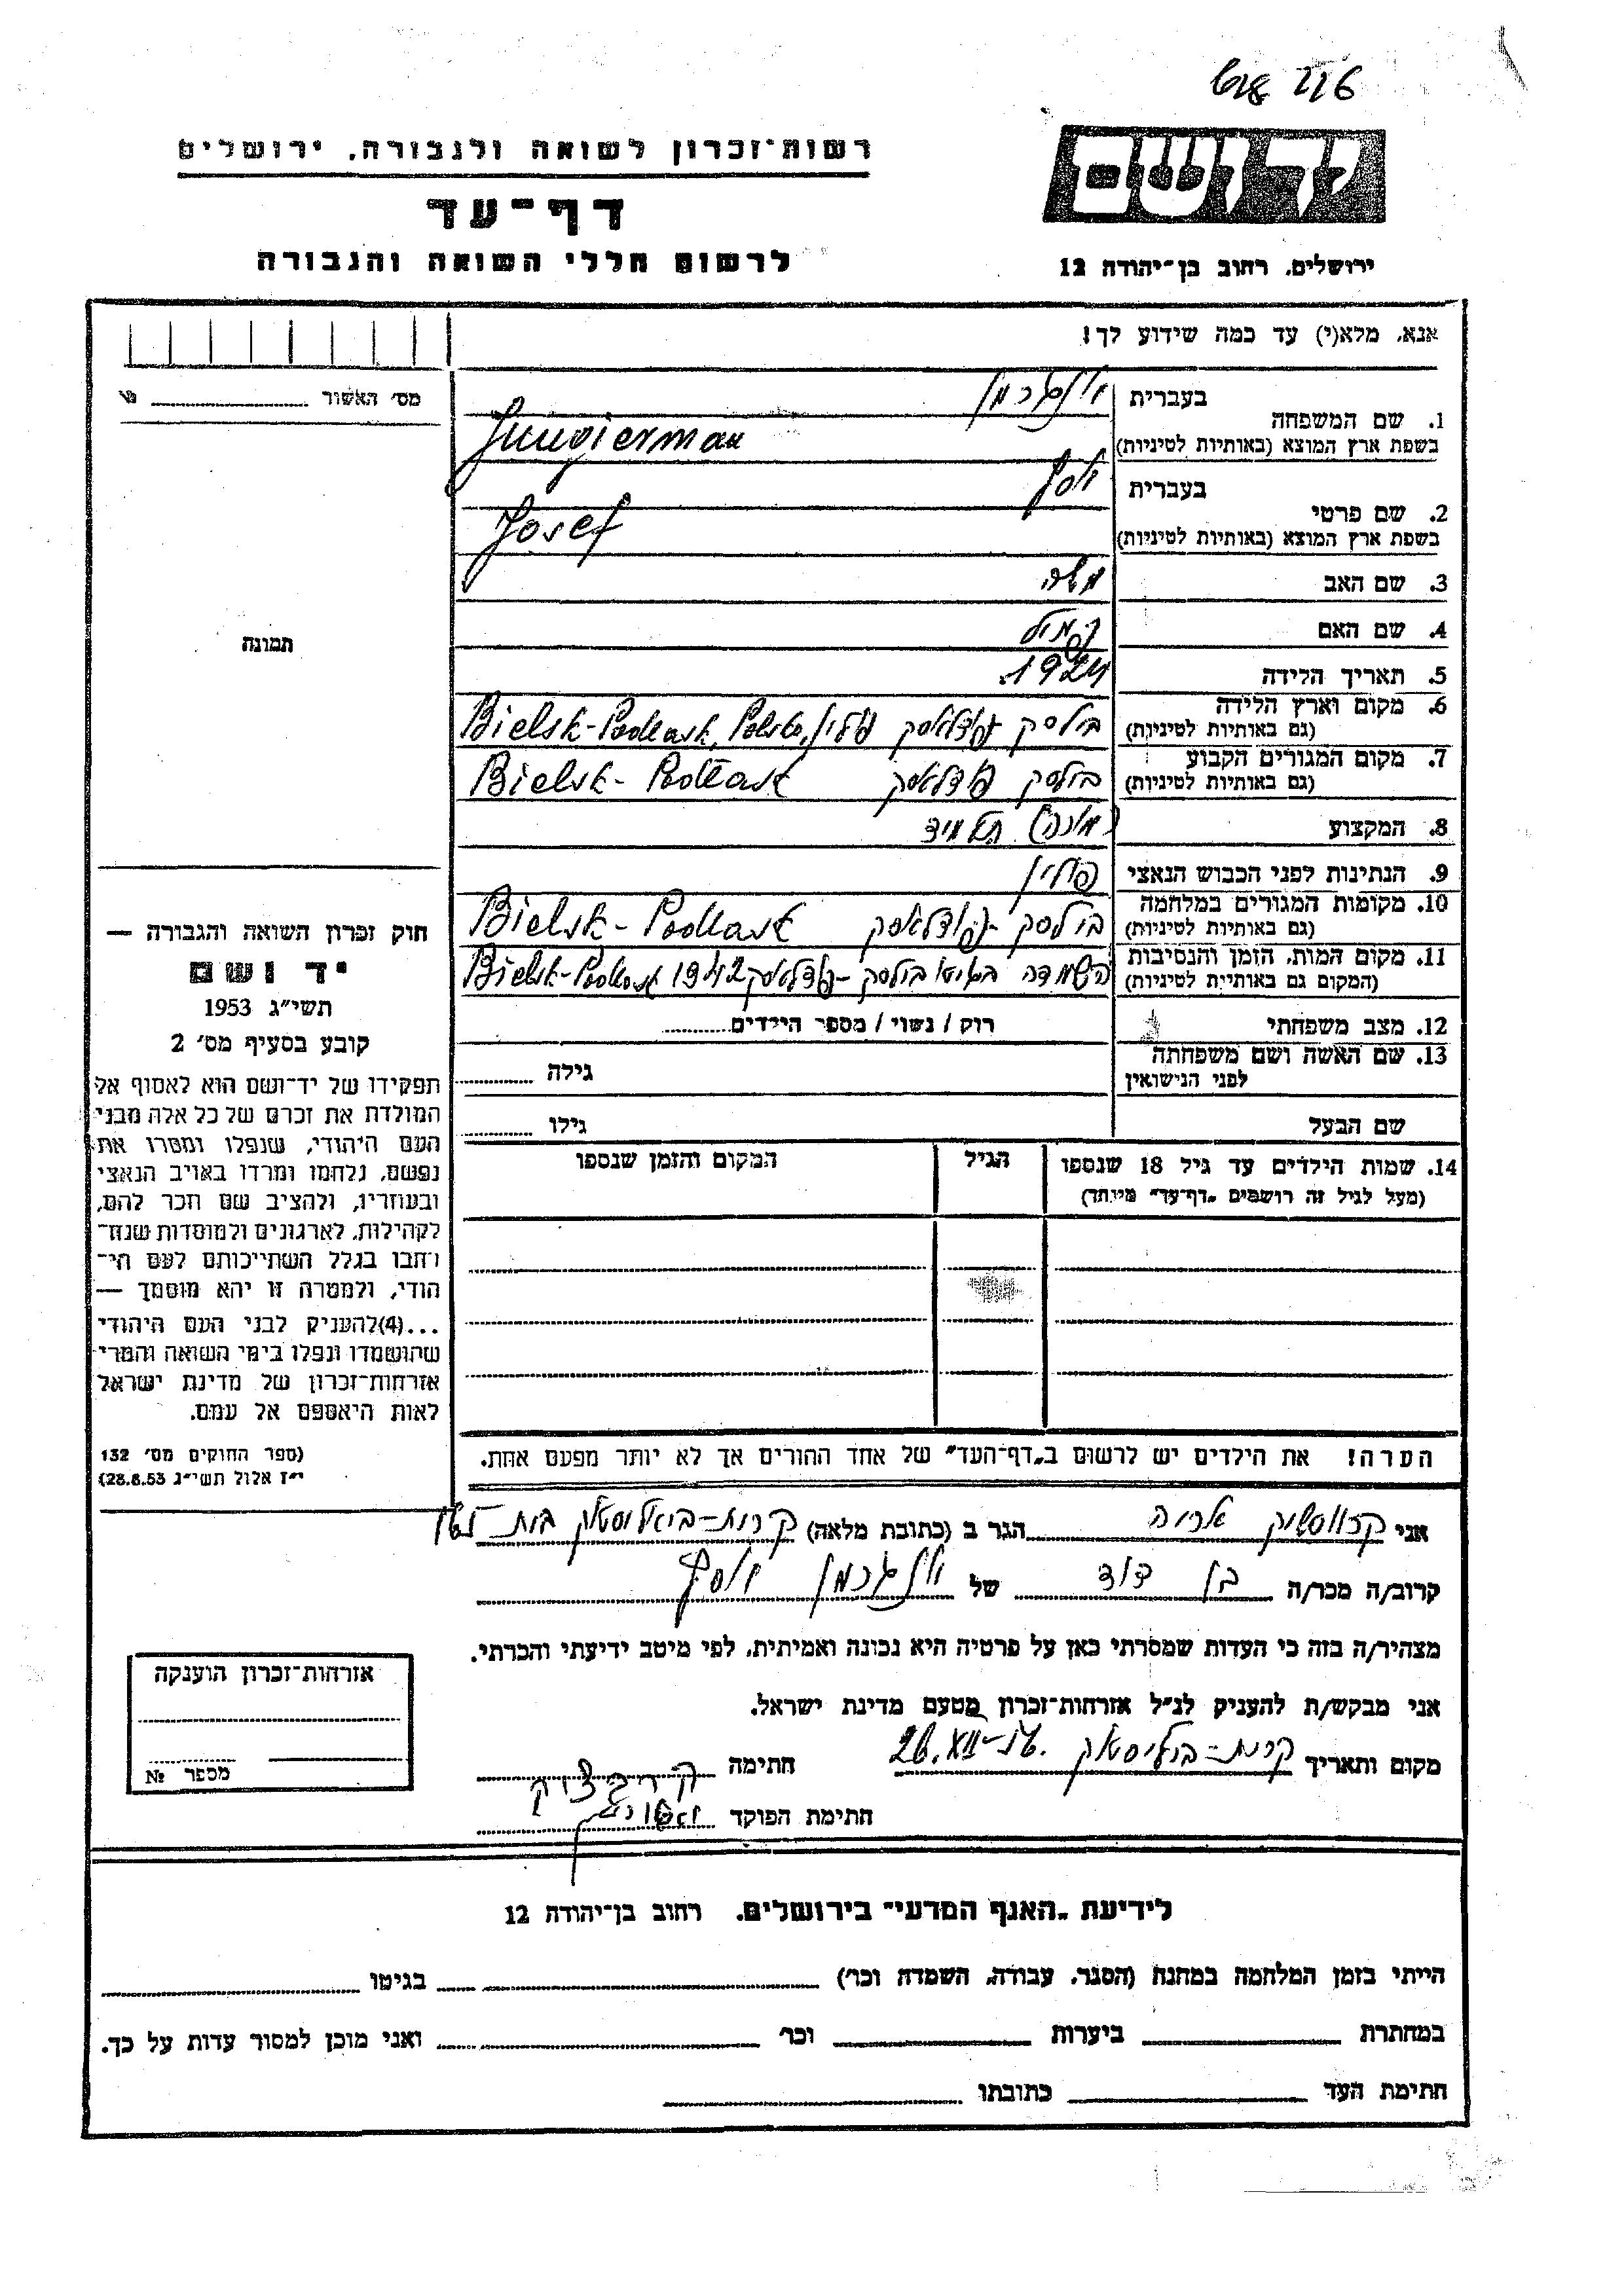 רשות־זכרון לשואה ולגבורה, ירושלים
דף־עד
לרשום חללי השואה והגבורה
יד ושם
ירושלים, רחוב בן־יהודה 12
אנא, מלא(י) עד כמה שידוע לך!
מס׳ האשור
תמונה
חוק זכרון השואה והגבורה —
יד ושם
תשי״ג 1953
קובע בסעיף מס׳ 2
תפקידו של יד־ושם הוא לאסוף אל
המולדת את זכרם של כל אלה מבני
העם היהודי, שנפלו ומסרו את
נפשם, נלחמו ומרדו באויב הנאצי
ובעוזריו, ולהציב שם וזכר להם,
לקהילות, לארגונים ולמוסדות שנח־
רבו בגלל השתייכותם לעם הי־
הודי, ולמטרה זו יהא מוסמך —
...(4)להעניק לבני העם היהודי
שהושמדו ונפלו בימי השואה והמרי
אזרחות־זכרון של מדינת ישראל
לאות היאספם אל עמם.
(ספר החוקים מס׳ 132
י״ז אלול תשי״ג 28.8.53)
1. שם המשפחה בעברית יונגרמן
בשפת ארץ המוצא (באותיות לטיניות) Jungierman
2. שם פרטי בעברית יוסף
בשפת ארץ המוצא (באותיות לטיניות) Josef
3. שם האב משה
4. שם האם
5. תאריך הלידה 1924.
6. מקום וארץ הלידה (גם באותיות לטיניות) בילסק פודלאסק פולין, Bielsk-Podlask, Polska
7. מקום המגורים הקבוע (גם באותיות לטיניות) בילסק פודלאסק Bielsk-Podlask
8. המקצוע תלמיד
9. הנתינות לפני הכבוש הנאצי פולין
10. מקומות המגורים במלחמה (גם באותיות לטיניות) בילסק-פודלאסק Bielsk-Podlask
11. מקום המות, הזמן והנסיבות (המקום גם באותיות לטיניות) השמדה בגיטו בילסק-פודלאסק 1942 Bielsk-Podlask
12. מצב משפחתי רוק / נשוי / מספר הילדים
13. שם האשה ושם משפחתה לפני הנישואין גילה
שם הבעל גילו
14. שמות הילדים עד גיל 18 שנספו (מעל לגיל זה רושמים „דף־עד״ מיוחד) הגיל המקום והזמן שנספו
הערה! את הילדים יש לרשום ב„דף־העד״ של אחד ההורים אך לא יותר מפעם אחת.
אני אריה הגר ב (כתובת מלאה) קרית-ביאליסטוק
קרוב/ה מכר/ה בן דוד של יונגרמן יוסף
מצהיר/ה בזה כי העדות שמסרתי כאן על פרטיה היא נכונה ואמיתית, לפי מיטב ידיעתי והכרתי.
אני מבקש/ת להעניק לנ״ל אזרחות־זכרון מטעם מדינת ישראל.
מקום ותאריך קרית-ביאליסטוק חתימה
חתימת הפוקד
אזרחות־זכרון הוענקה
מספר №
לידיעת „האגף המדעי״ בירושלים, רחוב בן־יהודה 12
הייתי בזמן המלחמה במחנה (הסגר, עבודה, השמדה וכר׳) בגיטו
במחתרת ביערות וכר׳ ואני מוכן למסור עדות על כך.
חתימת העד כתובתו